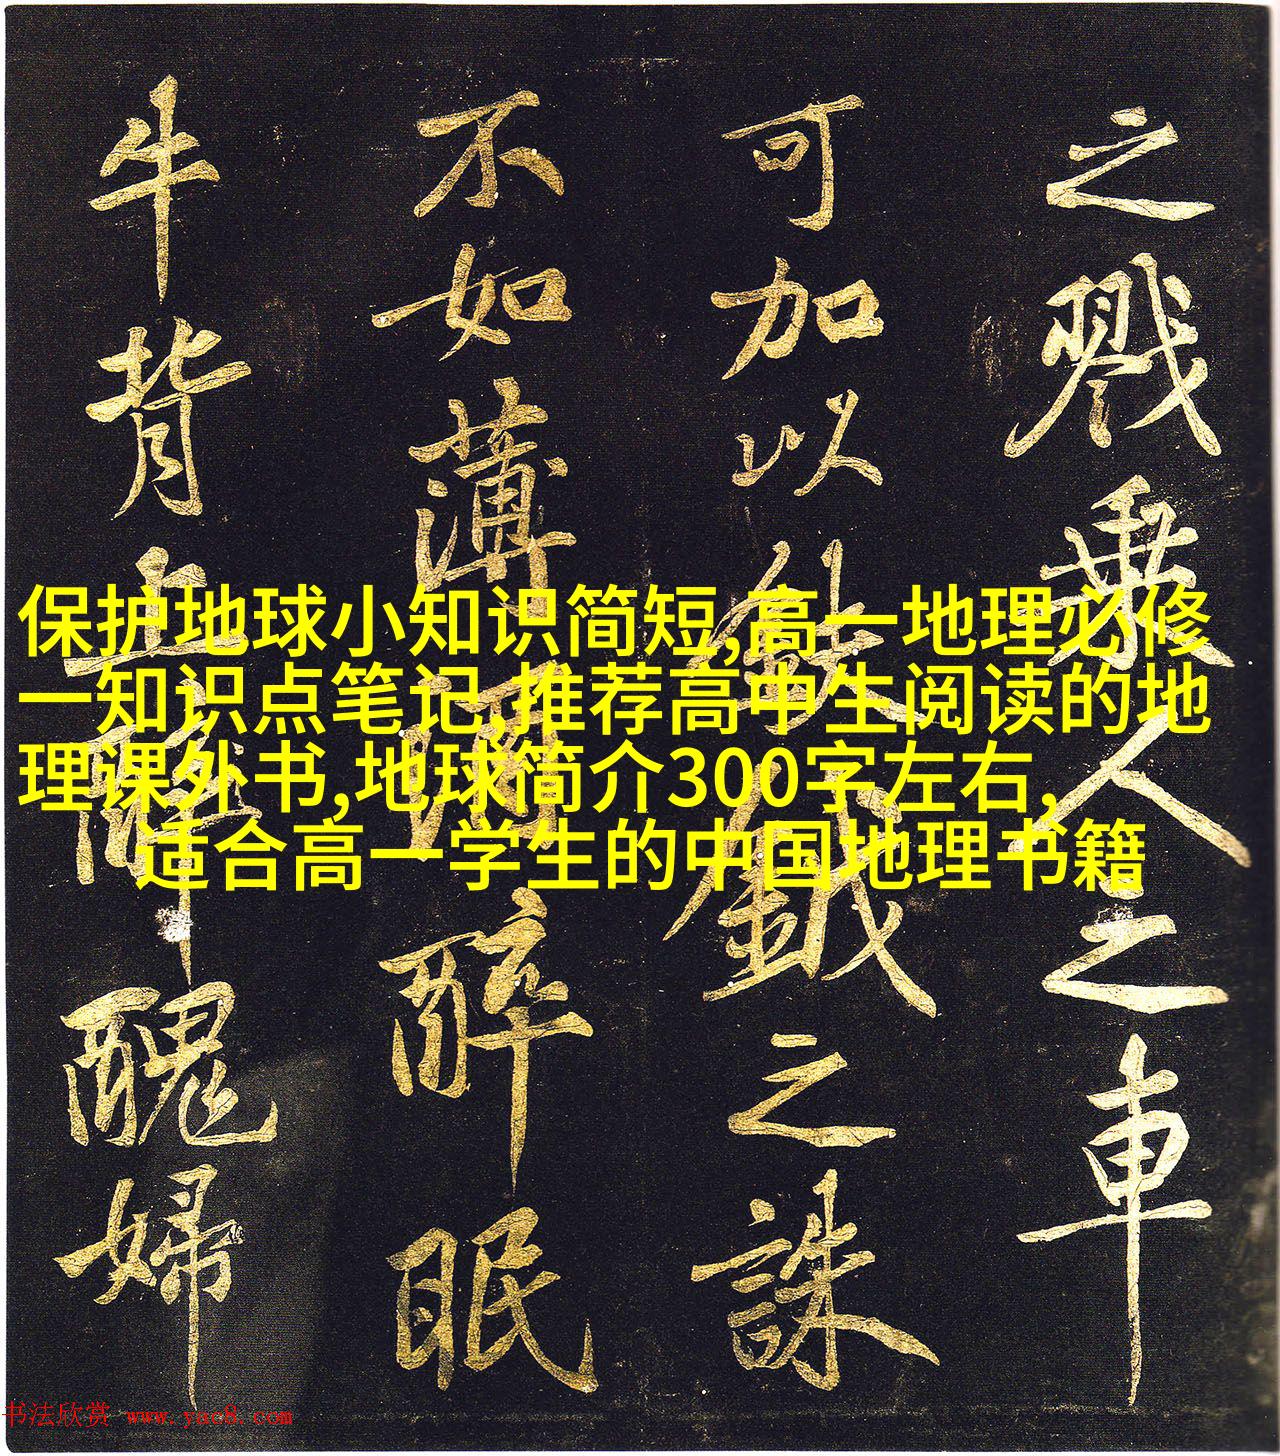 之戮乘人之車
可加以鈇鉞之誅
不如薄醉眠
牛背上醜婦
保护地球小知识简短,高一地理必修
一知识点笔记,推荐高中生阅读的地
理课外书,地球简介300字左右,
适合高一学生的中国地理书籍
书法欣赏 www.yac8.com